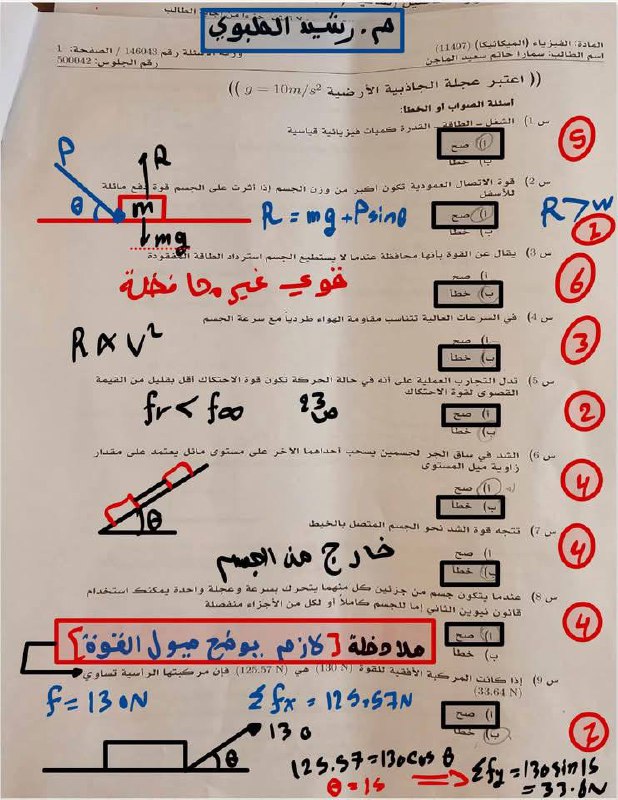 م. رشيد الطبوي
المادة: الفيزياء (الميكانيكا) (11407)
اسم الطالب: سمارا حاتم سعيد الماجن
ورقة الأسئلة رقم 146043 / الصفحة: 1
رقم الجلوس: 500042
(( اعتبر عجلة الجاذبية الأرضية g = 10m/s² ))
أسئلة الصواب أو الخطأ:
س 1) الشغل – الطاقة – القدرة كميات فيزيائية قياسية
أ) صح
ب) خطأ
5
س 2) قوة الاتصال العمودية تكون أكبر من وزن الجسم إذا أثرت على الجسم قوة دفع مائلة للأسفل
أ) صح
ب) خطأ
P
R
θ
m
mg
R = mg + Psinθ
R > W
1
س 3) يقال عن القوة بأنها محافظة عندما لا يستطيع الجسم استرداد الطاقة المفقودة
أ) صح
ب) خطأ
قوى غير محافظة
6
س 4) في السرعات العالية تتناسب مقاومة الهواء طردياً مع سرعة الجسم
أ) صح
ب) خطأ
R ∝ V²
3
س 5) تدل التجارب العملية على أنه في حالة الحركة تكون قوة الاحتكاك أقل بقليل من القيمة
القصوى لقوة الاحتكاك
أ) صح
ب) خطأ
ص 23
2
س 6) الشد في ساق الجر لجسمين يسحب أحداهما الآخر على مستوى مائل يعتمد على مقدار
زاوية ميل المستوى
أ) صح
ب) خطأ
θ
4
س 7) تتجه قوة الشد نحو الجسم المتصل بالخيط
أ) صح
ب) خطأ
خارج من الجسم
4
س 8) عندما يتكون جسم من جزئين كل منهما يتحرك بسرعة وعجلة واحدة يمكنك استخدام
قانون نيوتن الثاني إما للجسم كاملاً أو لكل من الأجزاء منفصلة
أ) صح
ب) خطأ
4
ملاحظة [لازم يوضح ميول القوة]
س 9) إذا كانت المركبة الأفقية للقوة (130 N) هي (125.57 N) فإن مركبتها الرأسية تساوي
(33.64 N)
أ) صح
ب) خطأ
f = 130N
Σfx = 125.57N
130
θ
125.57 = 130cos θ
θ = 15
Σfy = 130sin15
= 33.6N